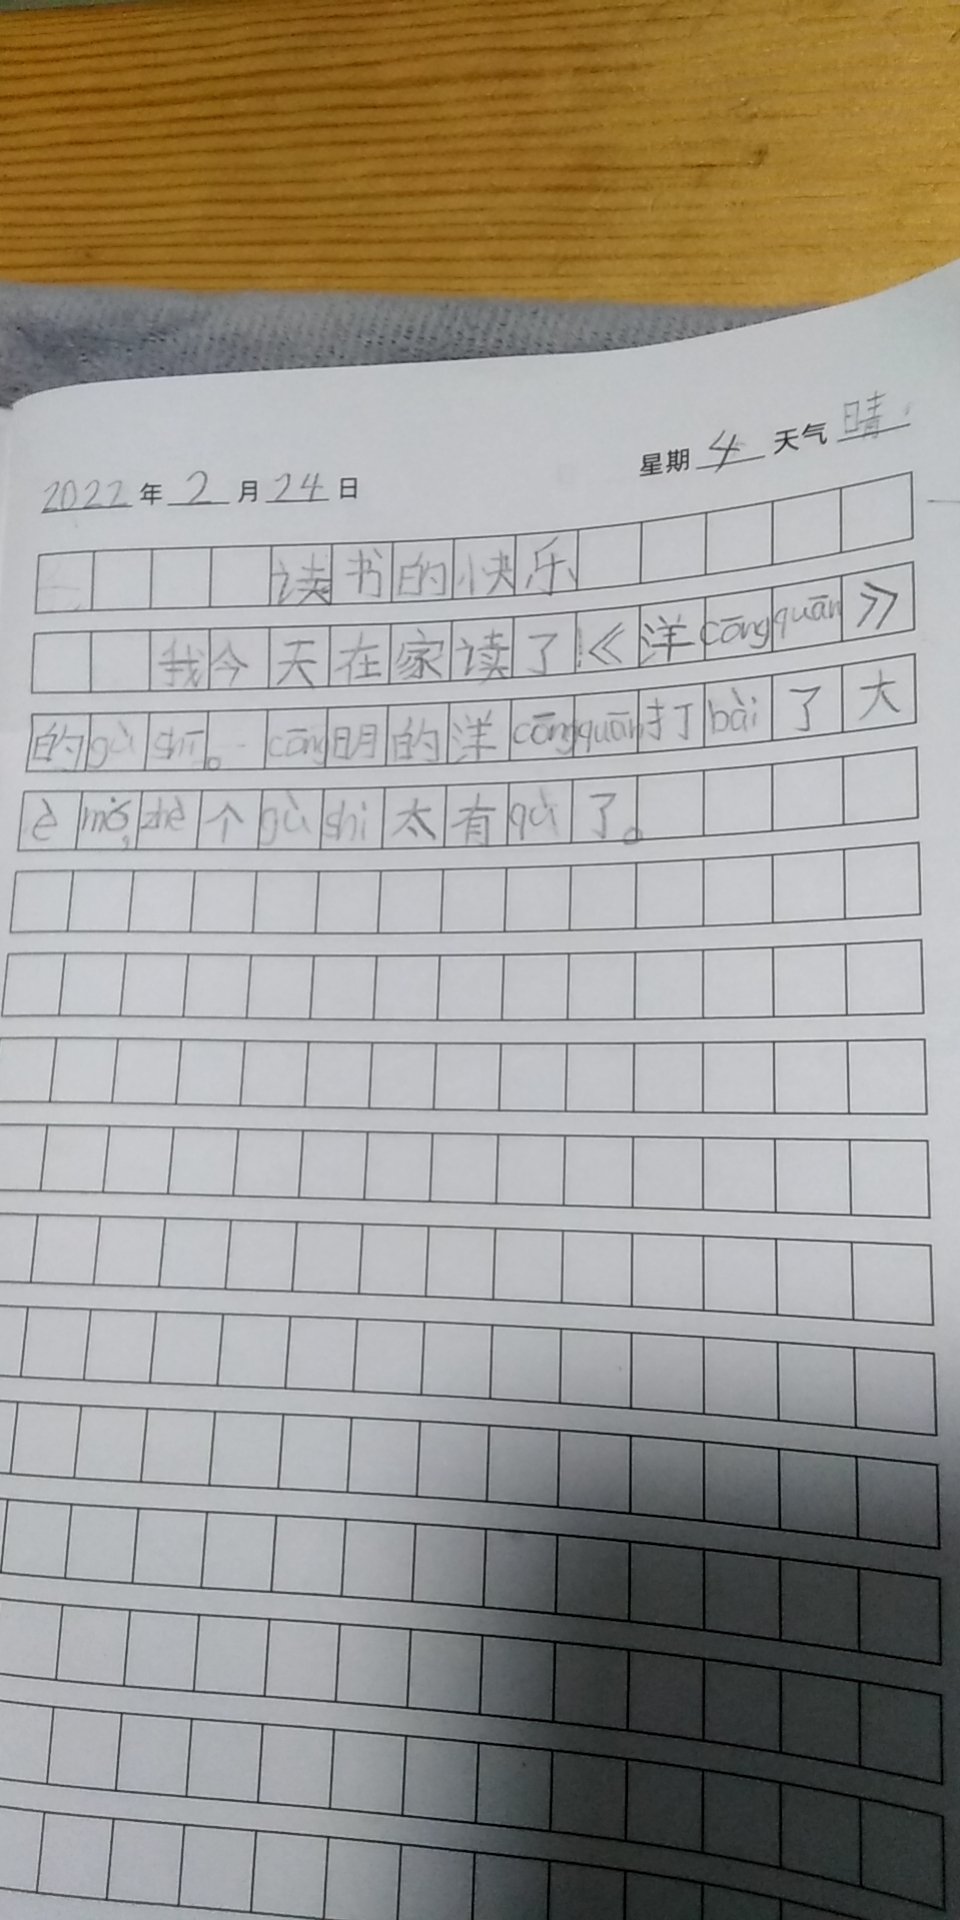 2022年2月24日 星期4 天气晴
读书的快乐
我今天在家读了《洋cōngquān》
的gù shī。cōng明的洋cōngquān打bài了大
è mó,zhè个gù shi太有qù了。